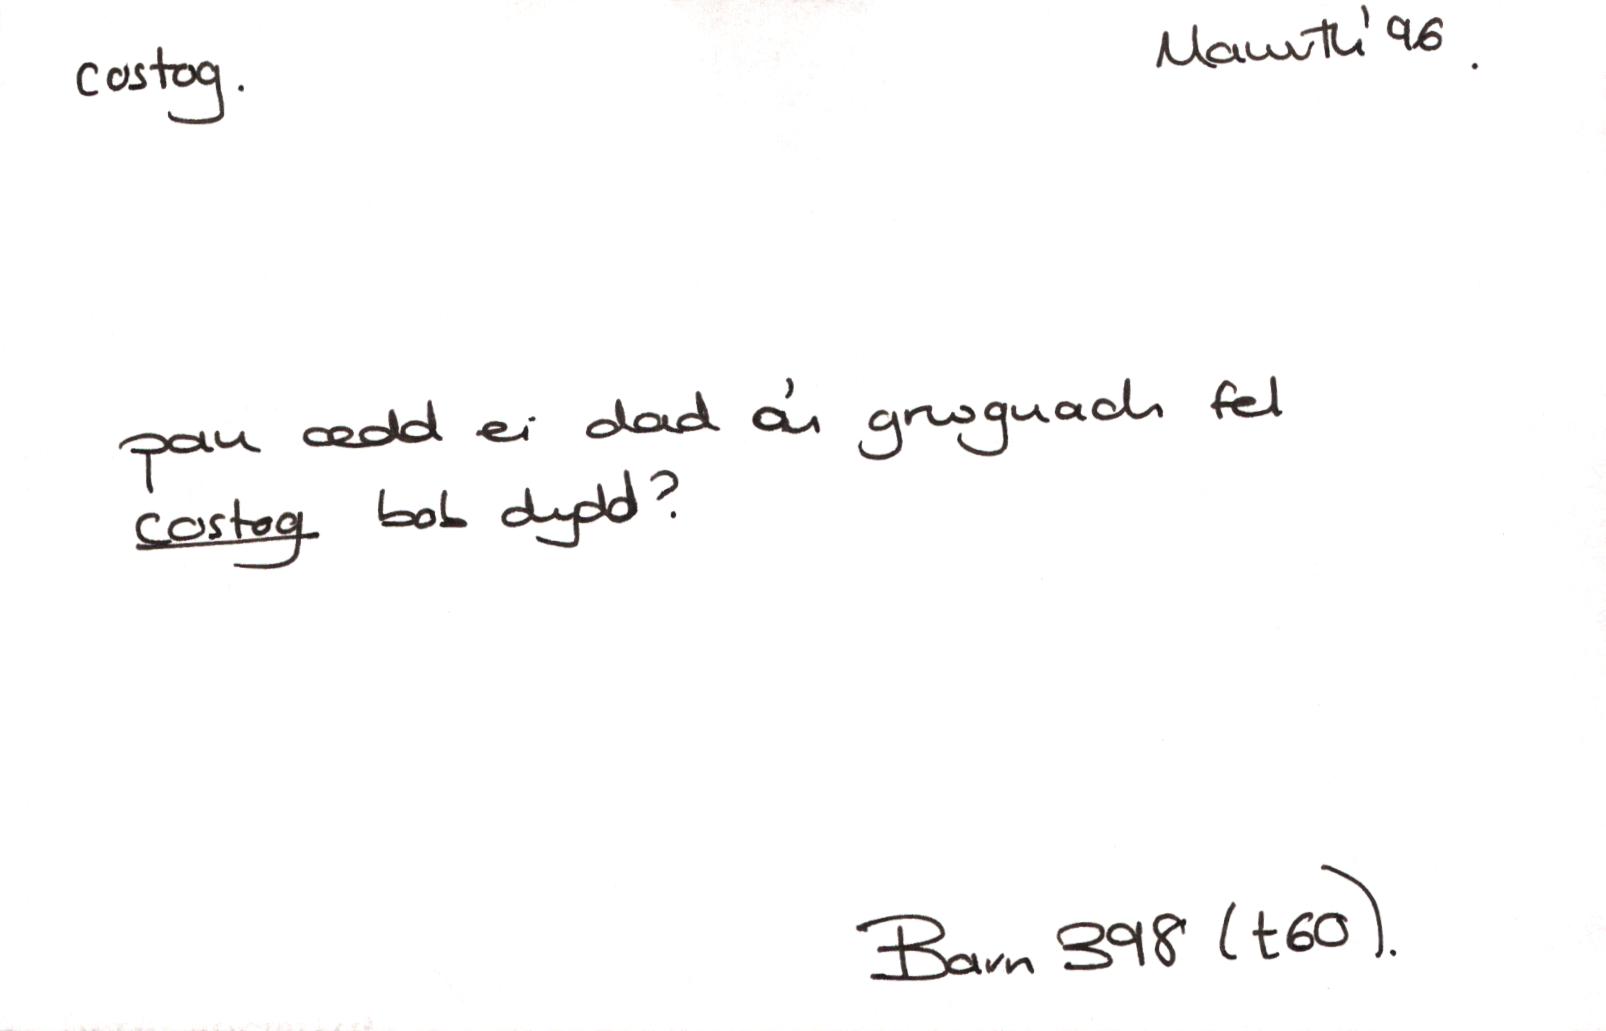 costog.
Mawrth '96.
pan oedd ei dad o'n grwgnach fel
costog bob dydd?
Barn 398 (t60).